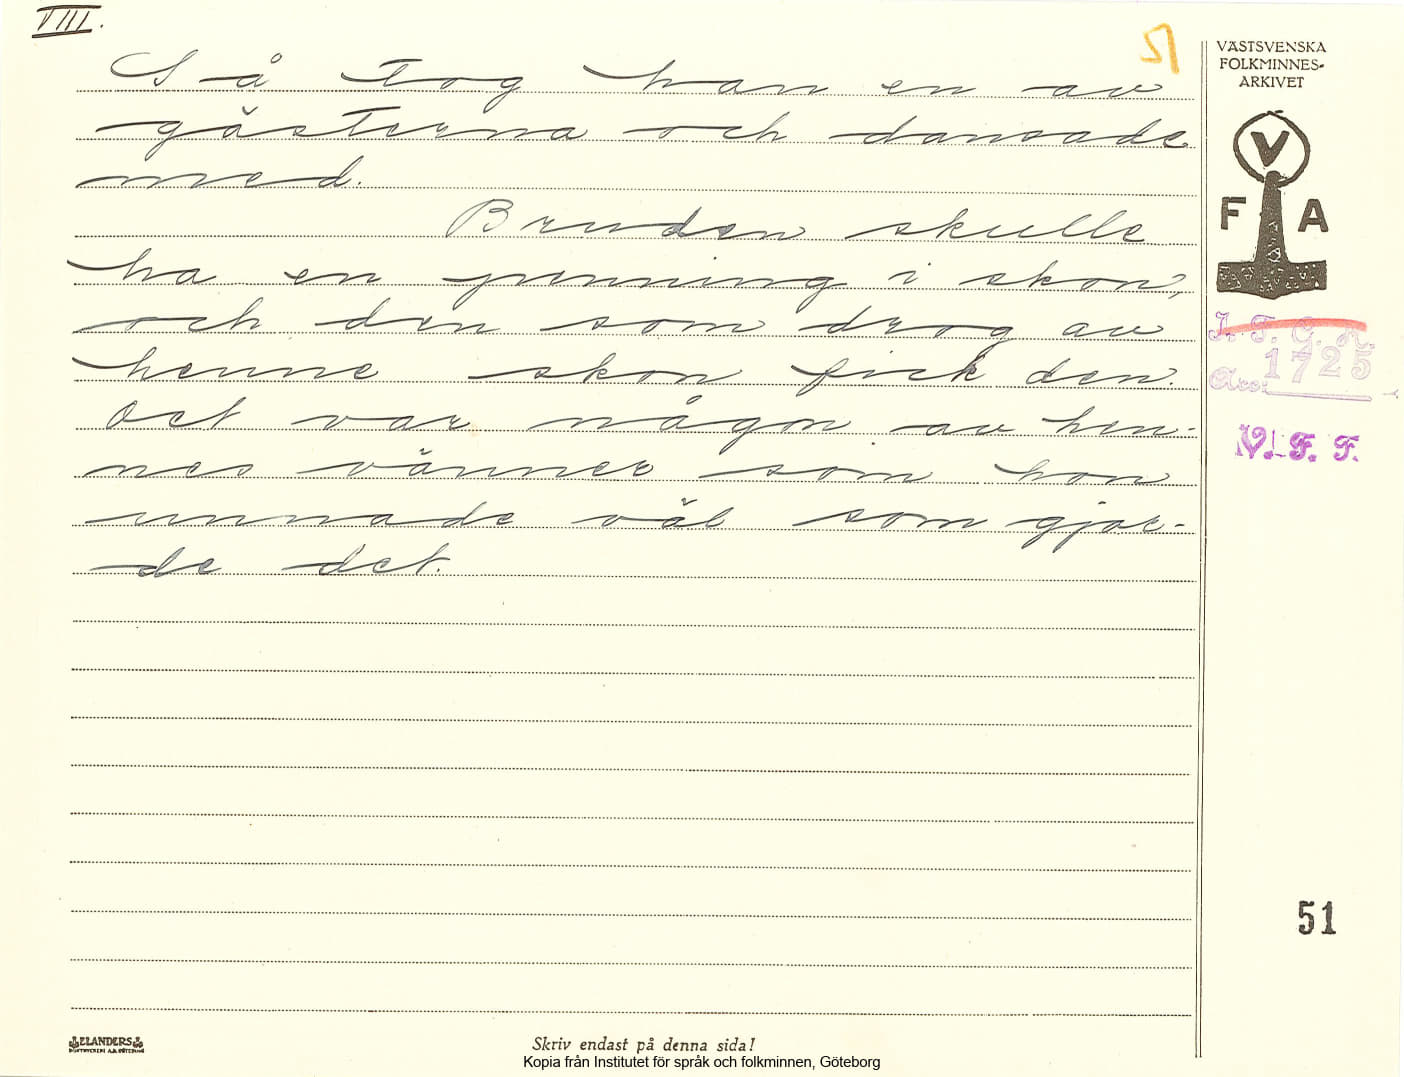 VIII.
51
Så tog han en av
gästerna och dansade
med.
Bruden skulle
ha en penning i skon,
och den som drog av
henne skon fick den.
Det var någon av hen-
nes vänner som hon
unnade väl som gjor-
de det.
VÄSTSVENSKA
FOLKMINNES-
ARKIVET
V
F A
I. F. G. H.
1725
Acc:
V. F. F.
51
ELANDERS
Skriv endast på denna sida!
Kopia från Institutet för språk och folkminnen, Göteborg